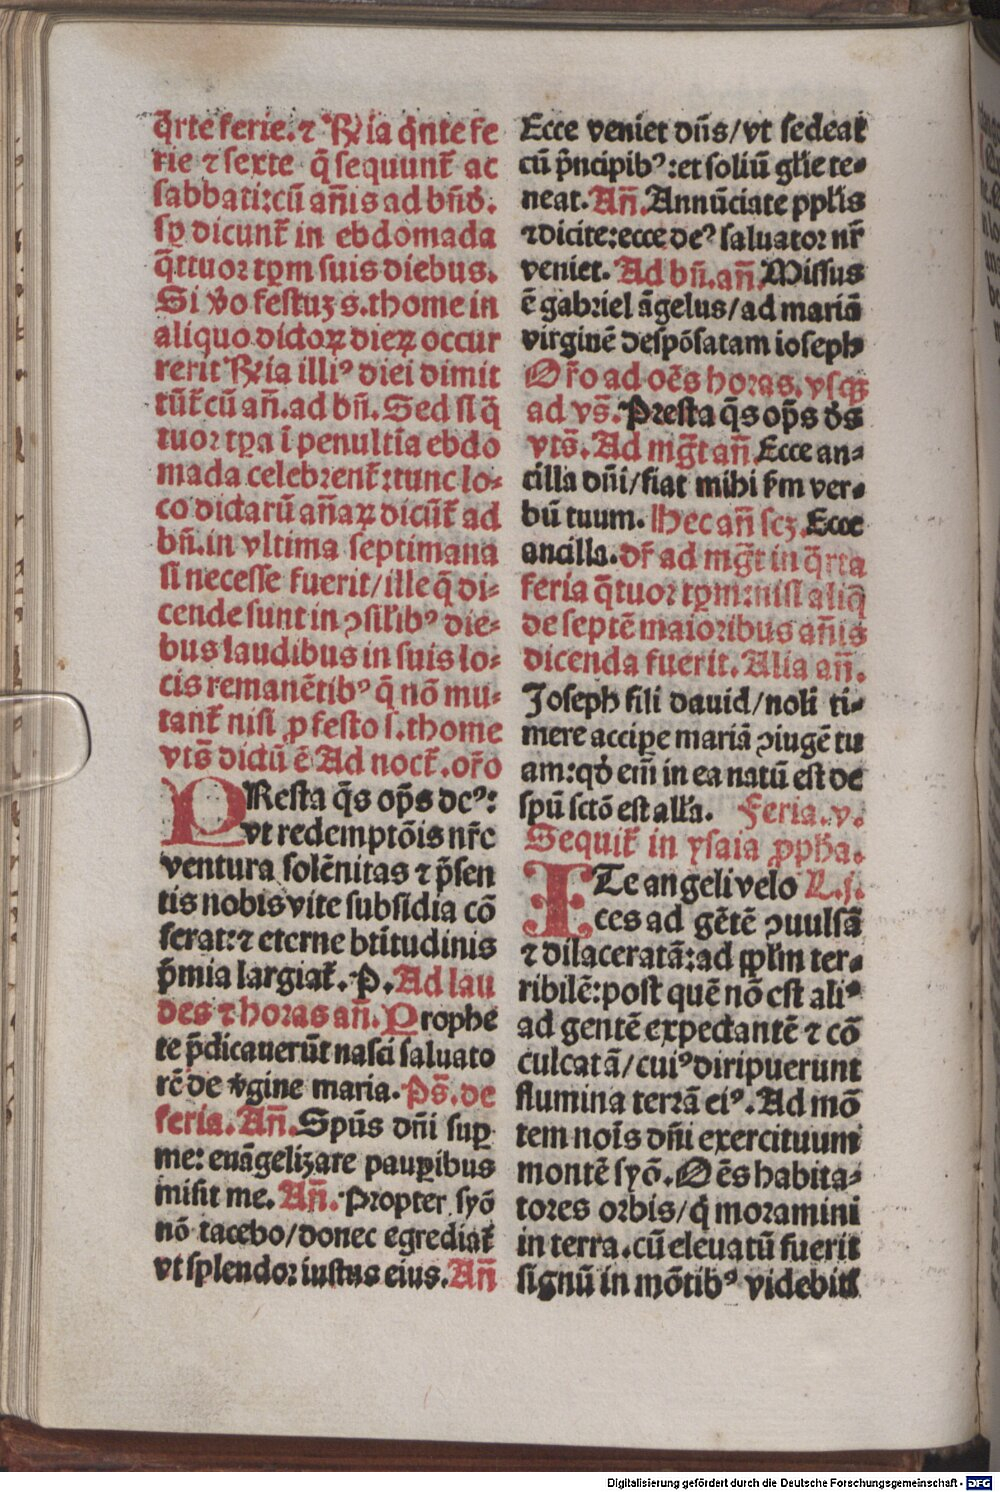 q̄rte ferie. ⁊ R̃ia q̄nte fe
rie ⁊ sexte q̄ sequunt̃ ac
sabbati: cū an̄is ad bn̄d̄.
sꝑ dicunt̃ in ebdomada
q̄ttuoꝛ tꝑm suis diebus.
Si v̄o festuꝫ s. thome in
aliquo dictoꝝ dieꝝ occur
rerit R̃ia illiꝰ diei dimit
tūt̃ cū an̄. ad bn̄. Sed si q̄
tuoꝛ tꝑa ī penultīa ebdo
mada celebꝛent̃: tunc lo⸗
co dictarū an̄aꝝ dicūt̃ ad
bn̄. in vltima septimana
si necesse fuerit/ ille q̄ di⸗
cende sunt in ↄsil̃ibꝰ die⸗
bus laudibus in suis lo⸗
cis remanētibꝰ q̄ nō mu⸗
tant̃ nisi ꝓ festo s. thome
vts̄ dictū ē Ad noct̃. or̃o
PResta q̄s op̄s deꝰ:
vt redemptōis nr̃e
ventura solēnitas ⁊ p̄sen
tis nobis vite subsidia cō
ferat: ⁊ eterne btītudinis
p̄mia largiat̃. P. Ad lau
des ⁊ horas an̄. Prophe
te p̄dicauerūt nasci saluato
rē de v̄gine maria. Ps̄. de
feria. An̄. Spūs dn̄i suꝑ
me: euāgelizare pauꝑibus
misit me. An̄. Propter syō
nō tacebo/ donec egrediat̃
vt splendoꝛ iustus eius. An̄
Ecce veniet dn̄s/ vt sedeat
cū p̄ncipibꝰ: et soliū gl̃ie te⸗
neat. An̄. Annūciate ppl̃is
⁊ dicite: ecce deꝰ saluatoꝛ nr̃
veniet. Ad bn̄. an̄. Missus
ē gabriel āgelus/ ad mariā
virginē despōsatam ioseph
Or̃o ad oēs horas. vsqꝫ
ad vs̄. Presta q̄s op̄s d̄s
vts̄. Ad mg̃t an̄ Ecce an⸗
cilla dn̄i/ fiat mihi s̃m ver⸗
bū tuum. Hec an̄ scꝫ. Ecce
ancilla. dr̃ ad mg̃t in q̄rta
feria q̄tuoꝛ tꝑm: nisi aliq̄
de septē maioribus an̄is
dicenda fuerit. Alia an̄.
Joseph fili dauid/ noli ti⸗
mere accipe mariā ↄiugē tu
am: qd̄ em̄ in ea natū est de
spū sctō est all̃a. Feria. v.
Sequit̃ in ysaia ꝓph̃a.
ITe angeli velo L. j.
ces ad gētē ↄuulsā
⁊ dilaceratā: ad ppl̃m ter⸗
ribilē: post quē nō est aliꝰ
ad gentē expectantē ⁊ cō
culcatā/ cuiꝰ diripuerunt
flumina terrā eiꝰ. Ad mō
tem noīs dn̄i exercituum
montē syō. Oēs habita⸗
tores orbis/ q̄ moramini
in terra. cū eleuatū fuerit
signū in mōtibꝰ videbit̃
Digitalisierung gefördert durch die Deutsche Forschungsgemeinschaft - DFG